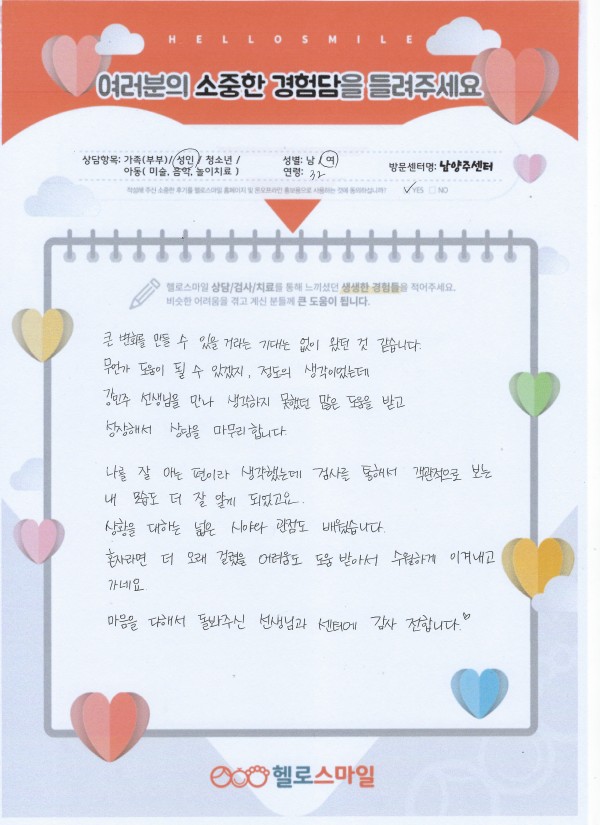 HELLOSMILE
여러분의 소중한 경험담을 들려주세요
상담항목: 가족(부부) / 성인 / 청소년 / 성별: 남 / 여 방문센터명: 남양주센터
아동( 미술, 음악, 놀이치료 ) 연령: 32
작성해 주신 소중한 후기를 헬로스마일 홈페이지 및 온오프라인 홍보용으로 사용하는 것에 동의하십니까? ✓YES □ NO
헬로스마일 상담/검사/치료를 통해 느끼셨던 생생한 경험들을 적어주세요.
비슷한 어려움을 겪고 계신 분들께 큰 도움이 됩니다.
큰 변화를 만들 수 있을 거라는 기대는 없이 왔던 것 같습니다.
무언가 도움이 될 수 있겠지, 정도의 생각이었는데
강민주 선생님을 만나 생각하지 못했던 많은 도움을 받고
성장해서 상담을 마무리합니다.
나를 잘 아는 편이라 생각했는데 검사를 통해서 객관적으로 보는
내 모습도 더 잘 알게 되었고요.
상황을 대하는 넓은 시야와 관점도 배웠습니다.
혼자라면 더 오래 걸렸을 어려움도 도움 받아서 수월하게 이겨내고
가네요
마음을 다해서 돌봐주신 선생님과 센터에 감사 전합니다.♡
헬로스마일